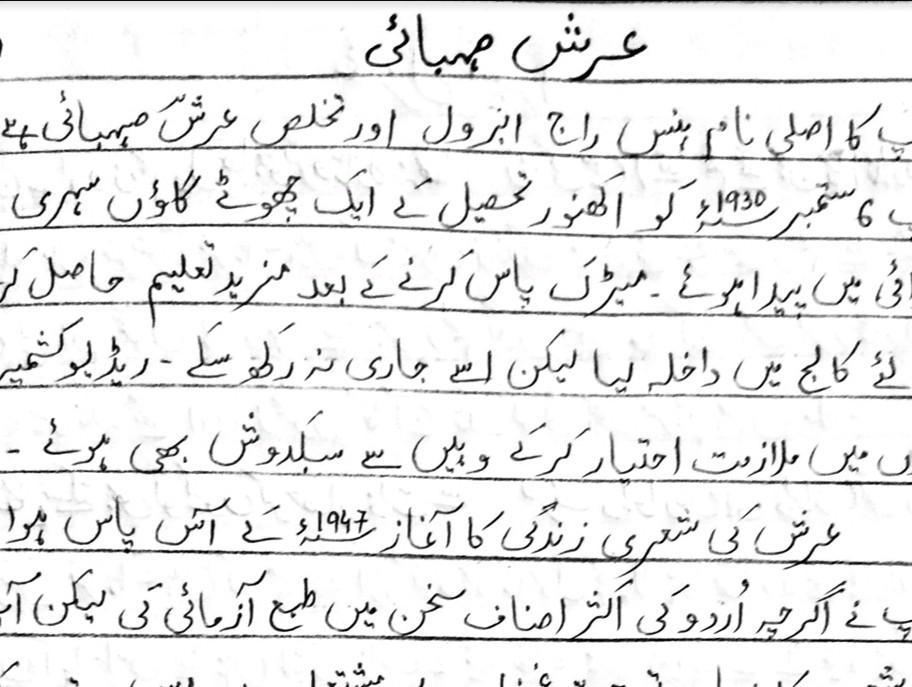 عرش صہبائی
پ کا اصلی نام ہنس راج ابرول اور تخلص عرشؔ صہبائی ہے
پ 6 ستمبر 1930ء کو اکھنور تحصیل کے ایک چھوٹے گاؤں سہری
ائی میں پیدا ہوئے ۔ میڑک پاس کرنے کے بعد مزید تعلیم حاصل کر
لئے کالج میں داخلہ لیا لیکن اسے جاری نہ رکھ سکے ۔ ریڈیو کشمیر
ں میں ملازمت اختیار کرکے وہیں سے سبکدوش بھی ہوئے ۔
عرش کی شعری زندگی کا آغاز 1947ء کے آس پاس ہوا
پ نے اگرچہ اُردو کی اکثر اصناف سخن میں طبع آزمائی کی لیکن آپ